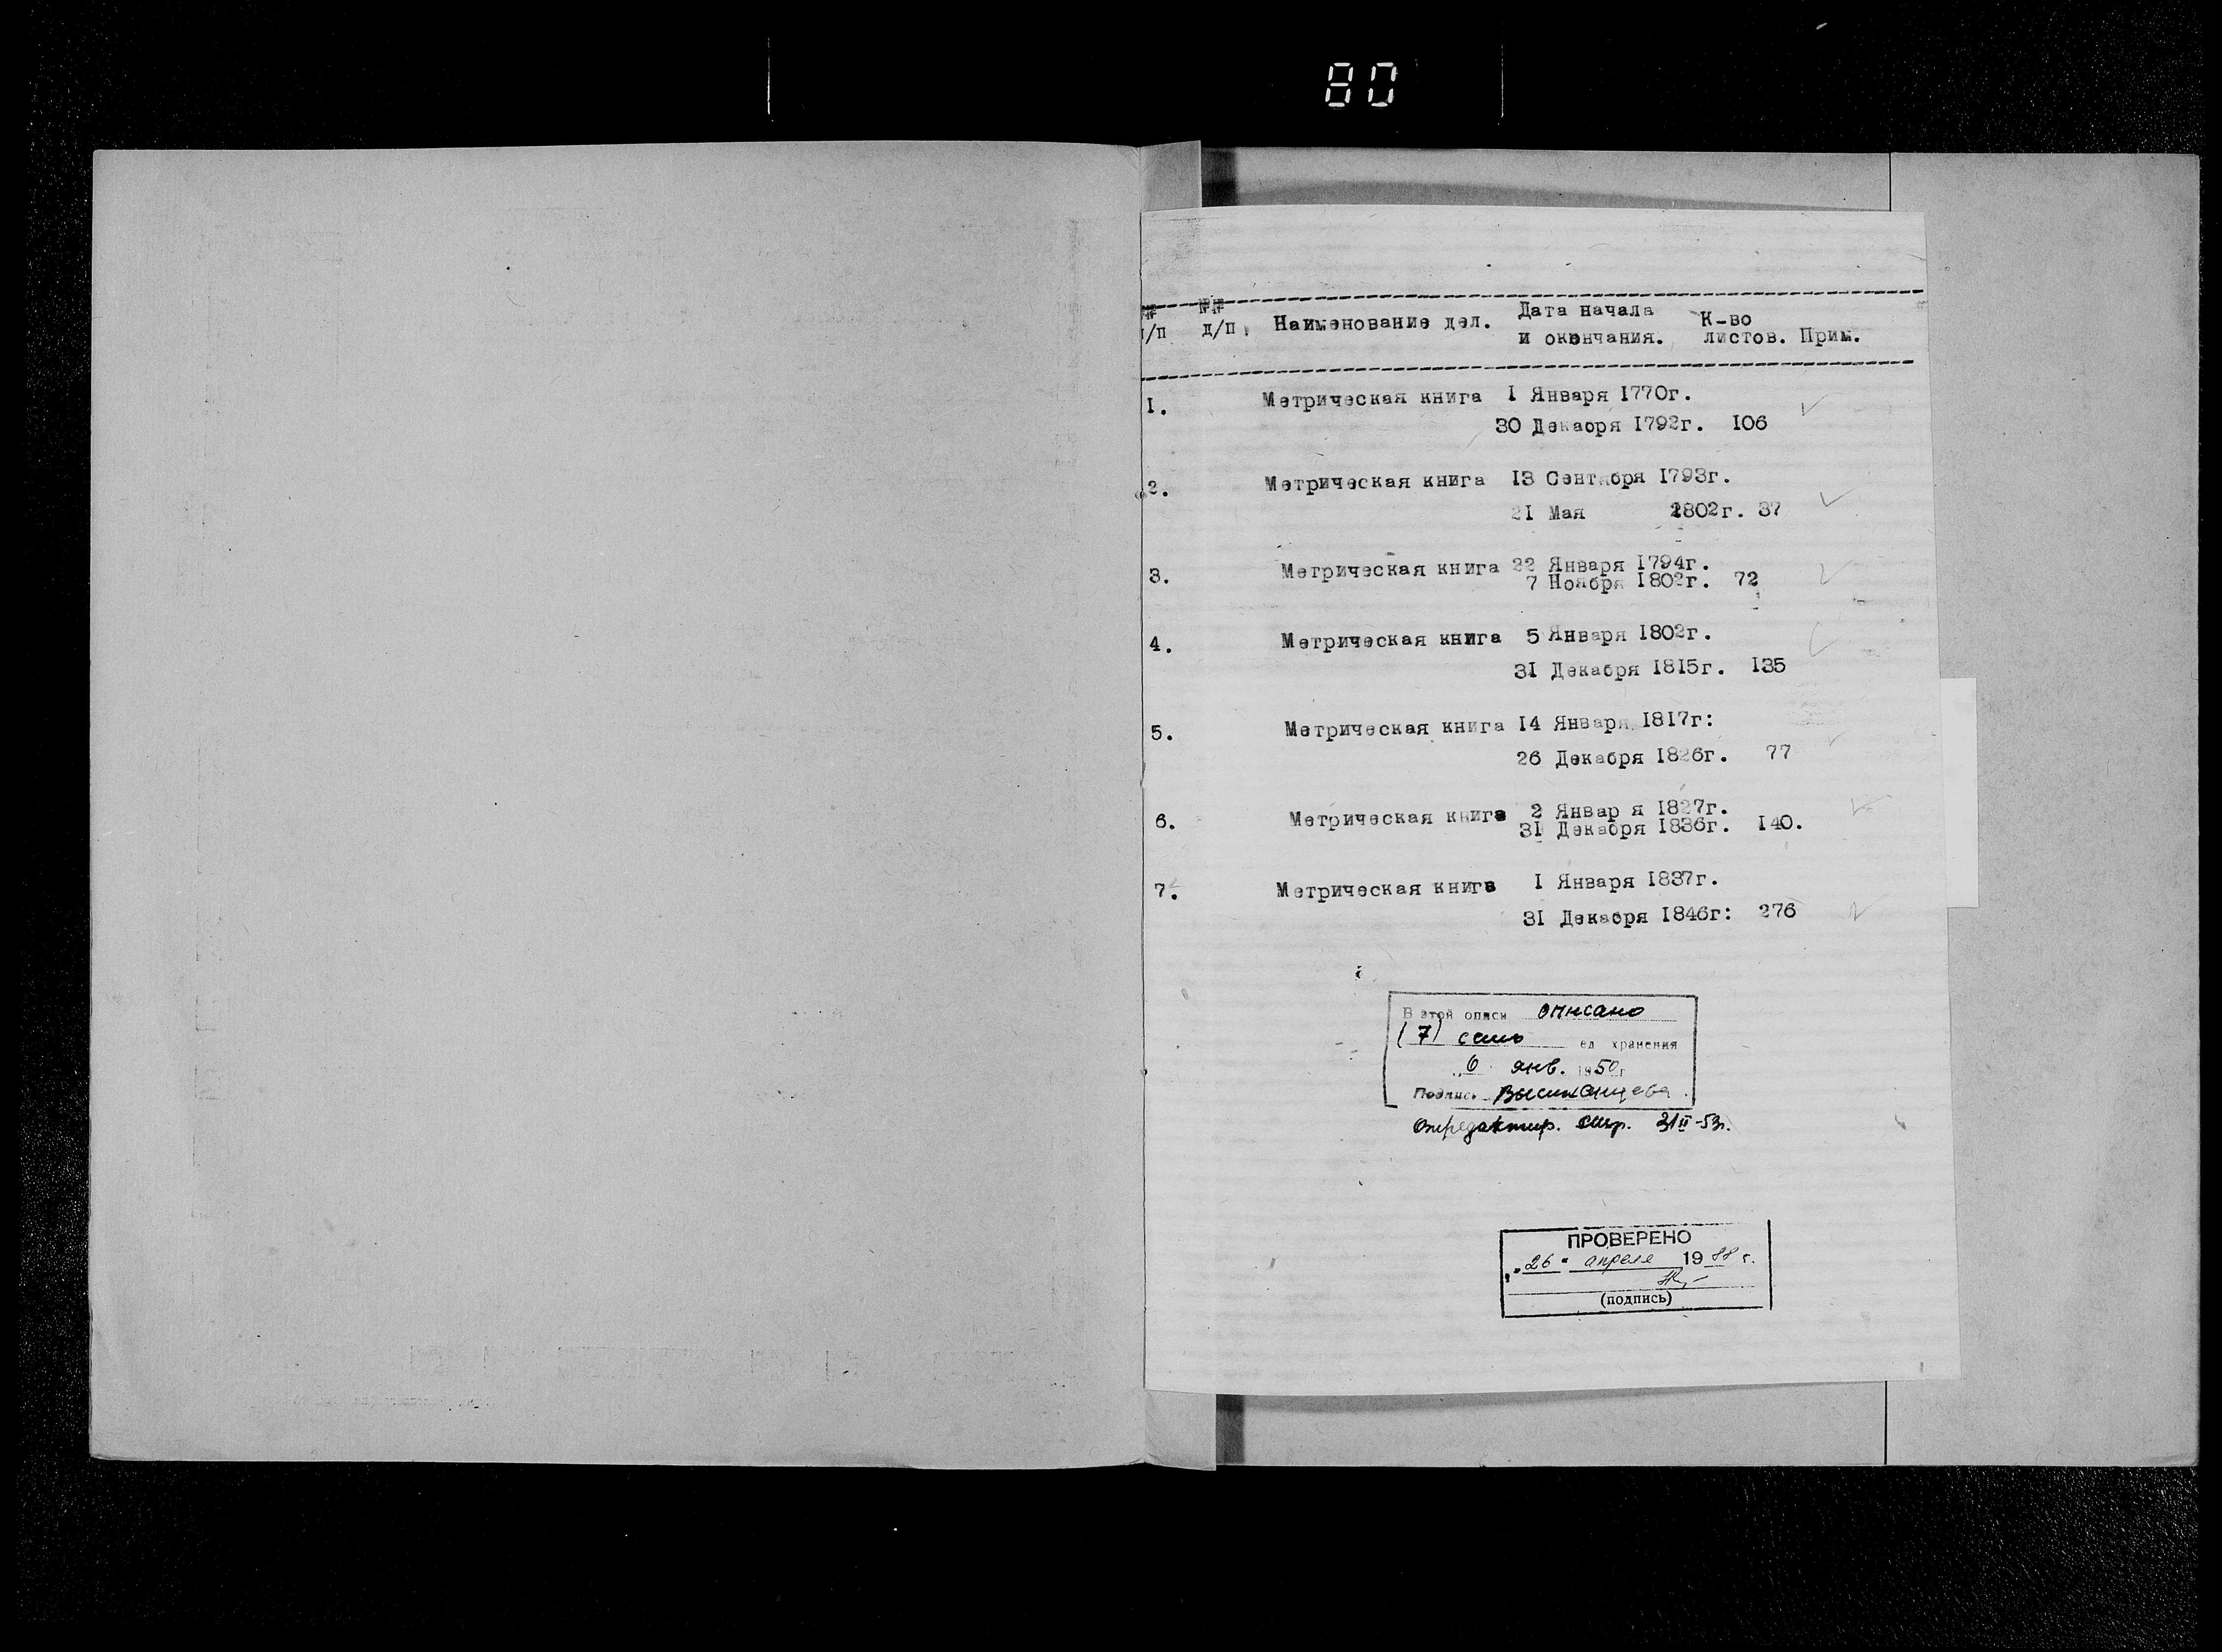 80
№№ №№ Дата начала К-во
п/п д/п Наименование дел. и окончания. листов. Прим.
1. Метрическая книга 1 Января 1770г.
30 Декабря 1792г. 106
2. Метрическая книга 13 Сентября 1793г.
21 Мая 1802г. 37
3. Метрическая книга 22 Января 1794г.
7 Ноября 1802г. 72
4. Метрическая книга 5 Января 1802г.
31 Декабря 1815г. 135
5. Метрическая книга 14 Января 1817г:
26 Декабря 1826г. 77
6. Метрическая книга 2 Январ я 1827г.
31 Декабря 1836г. 140.
7. Метрическая книга 1 Января 1837г.
31 Декабря 1846г: 276
В этой описи описано
(7) семь ед хранения
„6 янв. 1950г
Подпись
31 II-53г.
ПРОВЕРЕНО
„26" апреля 1988 г.
(подпись)